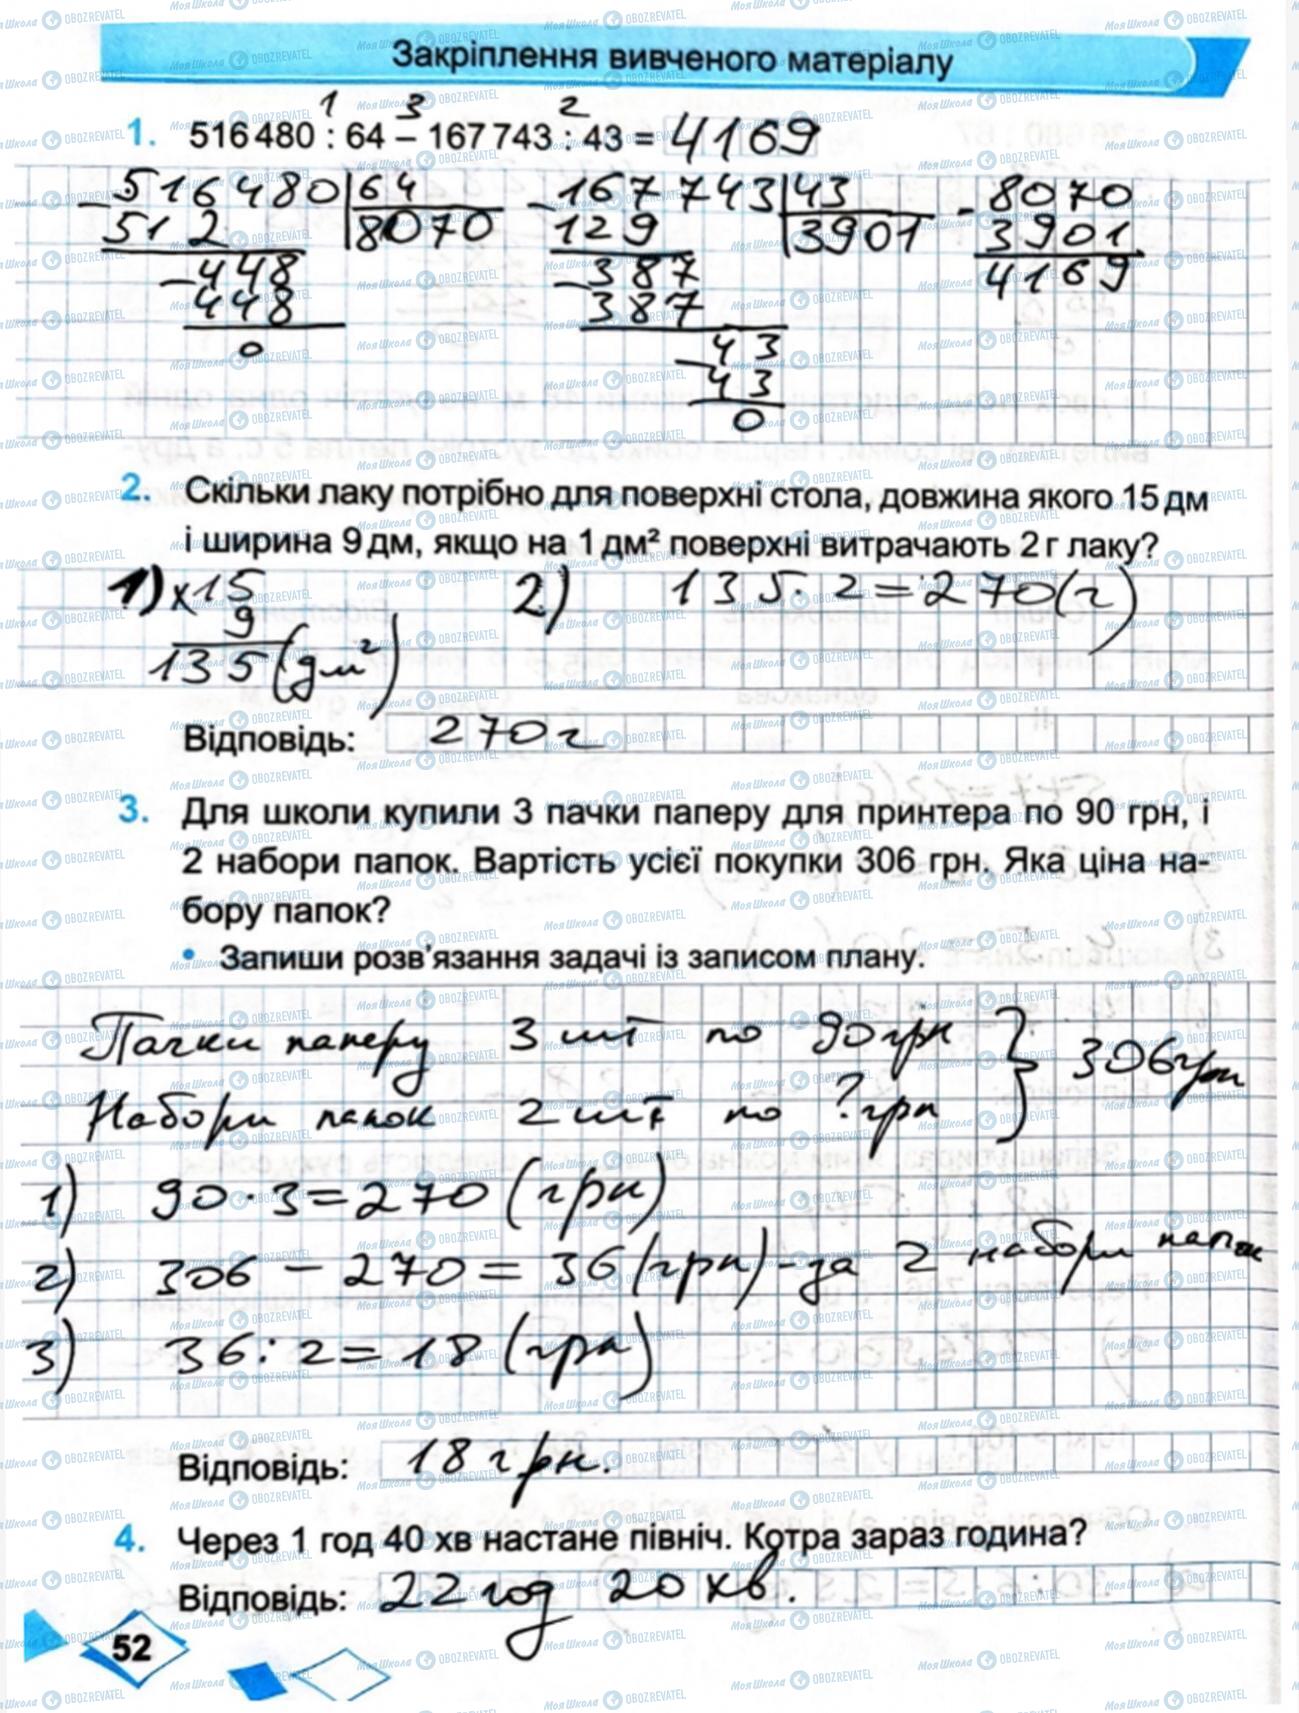 Закріплення вивченого матеріалу
1 3 2
1. 516 480 : 64 – 167 743 : 43 = 4169
516480 64 167743 43 8070
512 8070 129 3901 3901
448 387 4169
448 387
0 43
43
0
2. Скільки лаку потрібно для поверхні стола, довжина якого 15 дм
і ширина 9 дм, якщо на 1 дм² поверхні витрачають 2 г лаку?
1) х 15 2) 135 · 2 = 270 (г)
9
135 (дм²)
Відповідь: 270 г
3. Для школи купили 3 пачки паперу для принтера по 90 грн, і
2 набори папок. Вартість усієї покупки 306 грн. Яка ціна на-
бору папок?
• Запиши розв'язання задачі із записом плану.
Пачки паперу 3 шт по 90 грн } 306 грн
Набори папок 2 шт по ? грн
1) 90 · 3 = 270 (грн)
2) 306 – 270 = 36 (грн) – за 2 набори папок
3) 36 : 2 = 18 (грн)
Відповідь: 18 грн.
4. Через 1 год 40 хв настане північ. Котра зараз година?
Відповідь: 22 год 20 хв.
52
Моя Школа OBOZREVATEL